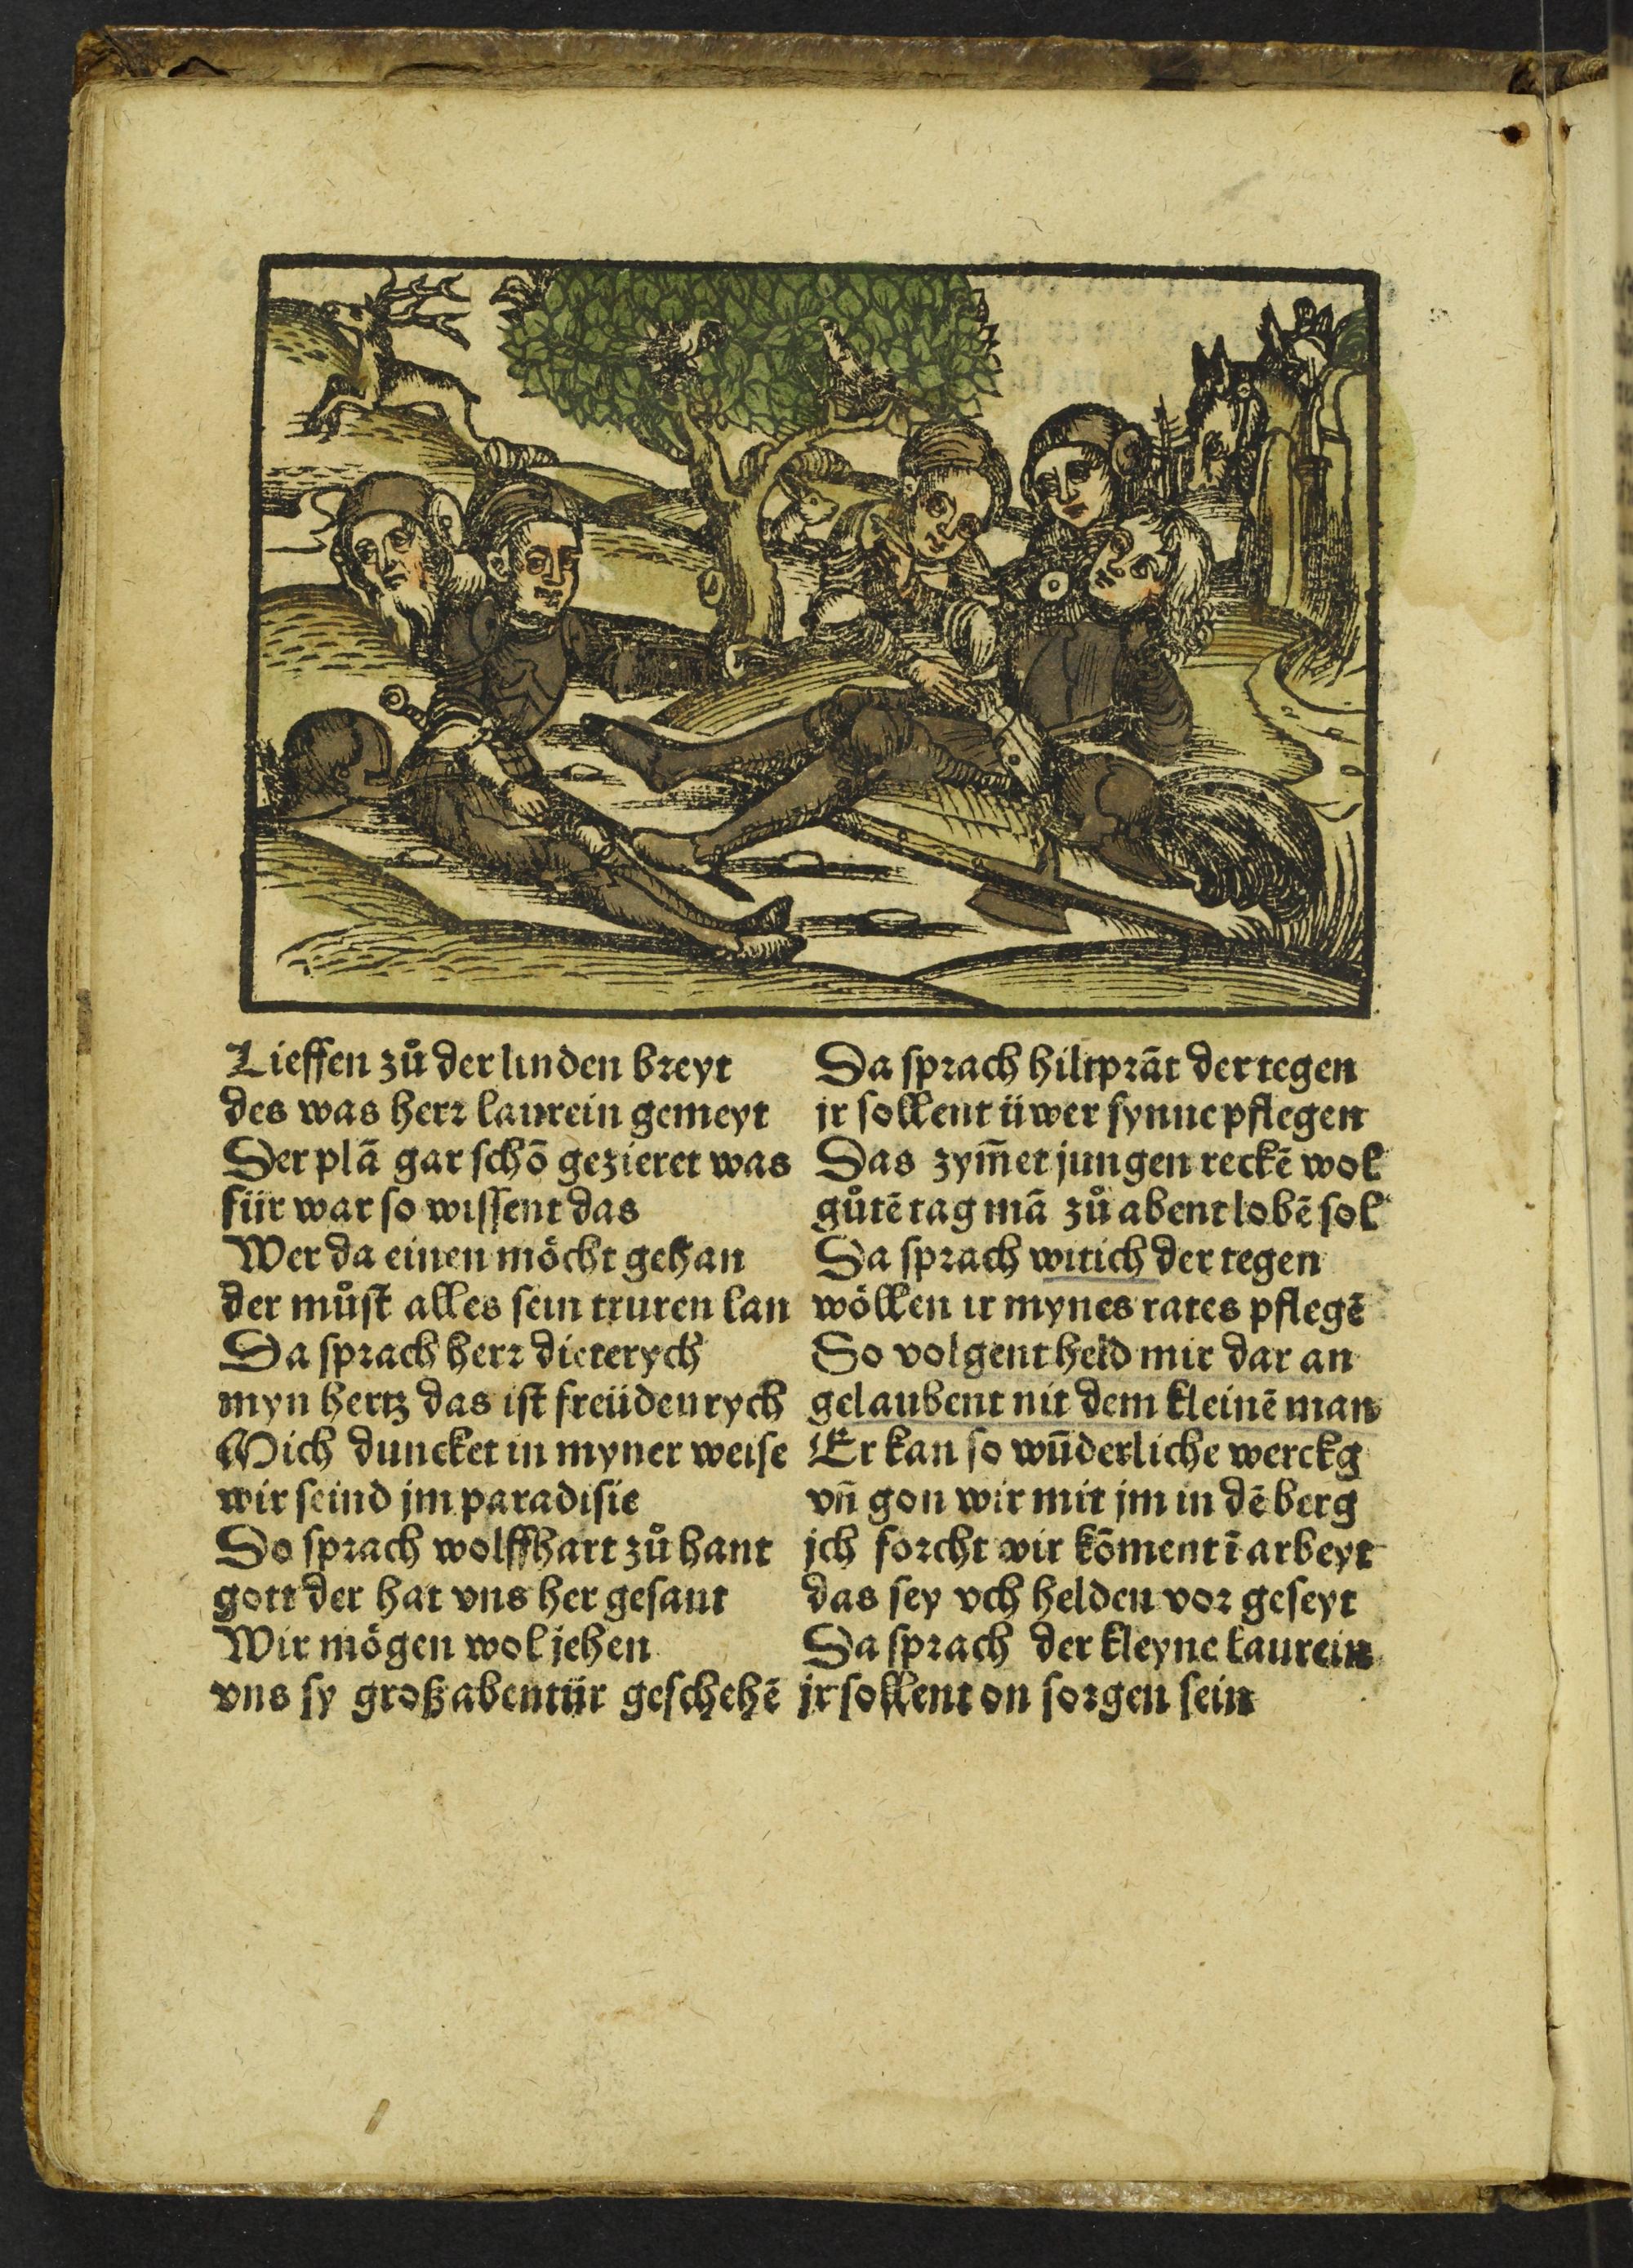 Lieffen zů der linden breyt
des was herr laurein gemeyt
Der plā gar schō gezieret was
für war so wissent das
Wer da einen möcht gehan
der můst alles sein truren lan
Da sprach herr dieterych
myn hertz das ist freüden rych
Mich duncket in myner weise
wir seind jm paradisie
Do sprach wolffhart zů hant
gott der hat vns her gesant
Wir mögen wol jehen
vns sy groß abentür geschehē
Da sprach hiltprāt der tegen
jr sollent üwer synne pflegen
Das zym̄et jungen reckē wol
gůtē tag mā zů abent lobē sol
Da sprach witich der tegen
wöllen ir mynes rates pflegē
So volgent held mir dar an
gelaubent nit dem kleinē man
Er kan so wūderliche werckg
vn̄ gon wir mit jm in dē berg
jch forcht wir kōment ī arbeyt
das sey vch helden vor geseyt
Da sprach der kleyne laurein
jr sollent on sorgen sein